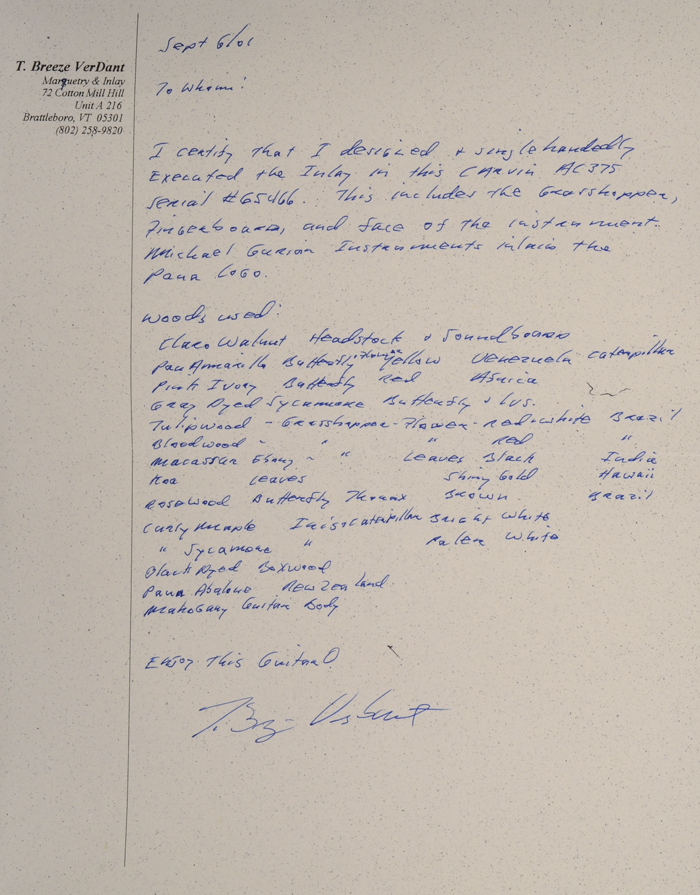 T. Breeze VerDant
Marquetry & Inlay
72 Cotton Mill Hill
Unit A 216
Brattleboro, VT 05301
(802) 258-9820
Sept 6/01
To Whom:
I certify that I designed & singlehandedly
Executed the Inlay in this Carvin AC375
Serial #65466. This includes the Grasshopper,
Fingerboard, and face of the instrument.
Michael Gurian Instruments inlaid the
Paua Logo.
Woods used:
Claro Walnut Headstock & Soundboard
Pau Amarillo Butterfly, Flower Yellow Venezuela Caterpillar
Pink Ivory Butterfly Red Africa
Gray Dyed Sycamore Butterfly & Lvs.
Tulipwood - Grasshopper - Flower - red & white Brazil
Bloodwood - " " Red "
Macassar Ebony - " Leaves Black India
Koa Leaves Shiny Gold Hawaii
Rosewood Butterfly Thorax Brown Brazil
Curly Maple Iris & Caterpillar Bright White
" Sycamore " Paler White
Black Dyed Boxwood
Paua Abalone New Zealand
Mahogany Guitar Body
Enjoy This Guitar!
T. Breeze Verdant